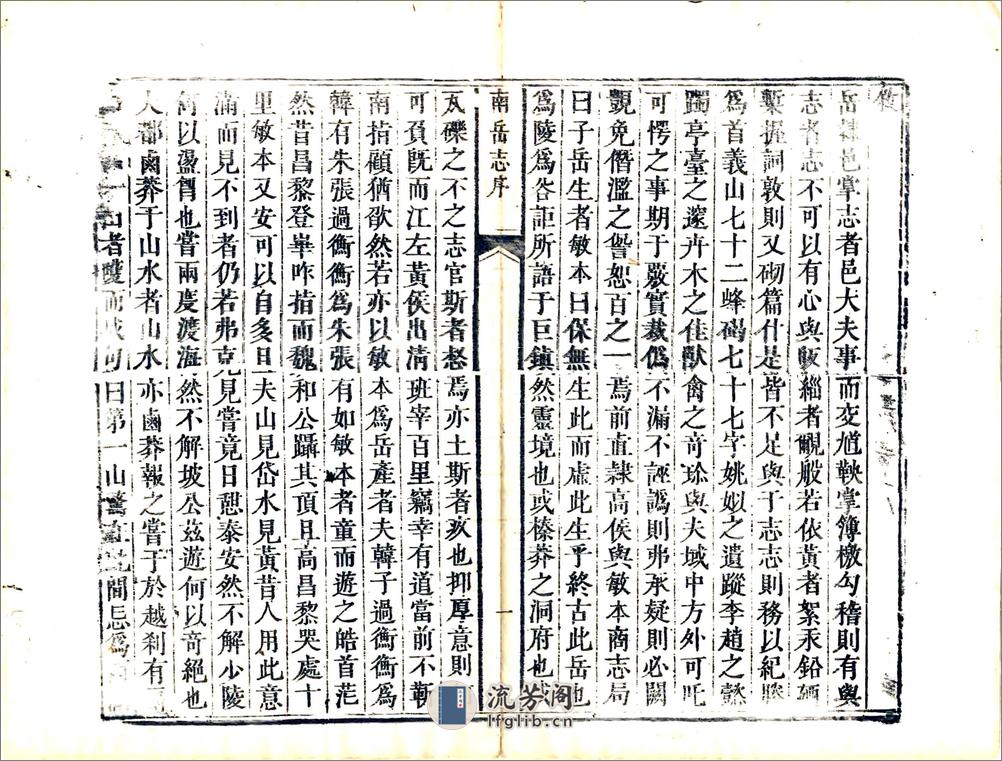 岳隸邑掌志者邑大夫事而交馗鞅掌簿檄勾稽則有與
志者志不可以有心與皈緇者覶般若依黃者絮汞鉛硒
槧握詞敦則又砌篇什是皆不足與于志志則務以紀勝
為首義山七十二峰碣七十七字姚姒之遺蹤李趙之懿
躅亭臺之邃卉木之佳獸禽之奇珍與夫域中方外可吒
可愕之事期于嚴實裁偽不漏不誣譌則弗承疑則必闕
覬免僭濫之譽恕百之一焉前直隸高侯與敏本商志局
曰子岳生者敏本曰保無生此而虛此生乎終古此岳也
為陵為谷詎所語于巨鎮然靈境也或榛莽之洞府也或
南岳志序
一
瓦礫之不之志官斯者愁焉亦土斯者疚也抑厚意則
可負既而江左黃侯出清班宰百里竊幸有道當前不靳
南指顧猶欲然若亦以敏本為岳產者夫韓子過衡衡為
韓有朱張過衡衡為朱張有如敏本者童而遊之皓首茫
然昔昌黎登崋咋指而魏和公躡其頂且高昌黎哭處十
里敏本又安可以自多且夫山見岱水見黃昔人用此意
滿而見不到者仍若弗克見嘗竟日憩泰安然不解少陵
何以盪胷也嘗兩度渡海然不解坡公茲遊何以奇絕也
人都鹵莽于山水者山水亦鹵莽報之嘗于於越刹有
一山者雙而成可曰第一山間怎為
流芳阁
lfglib.cn